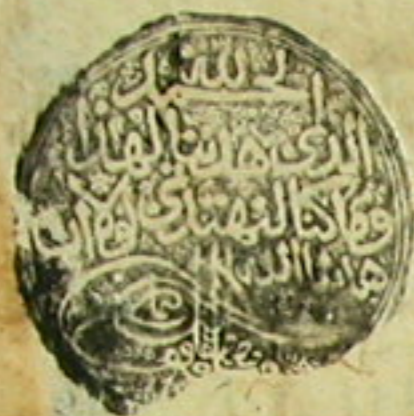 الحمد لله
الذي هدانا لهذا
وما كنا لنهتدي لولا أن
هدانا الله